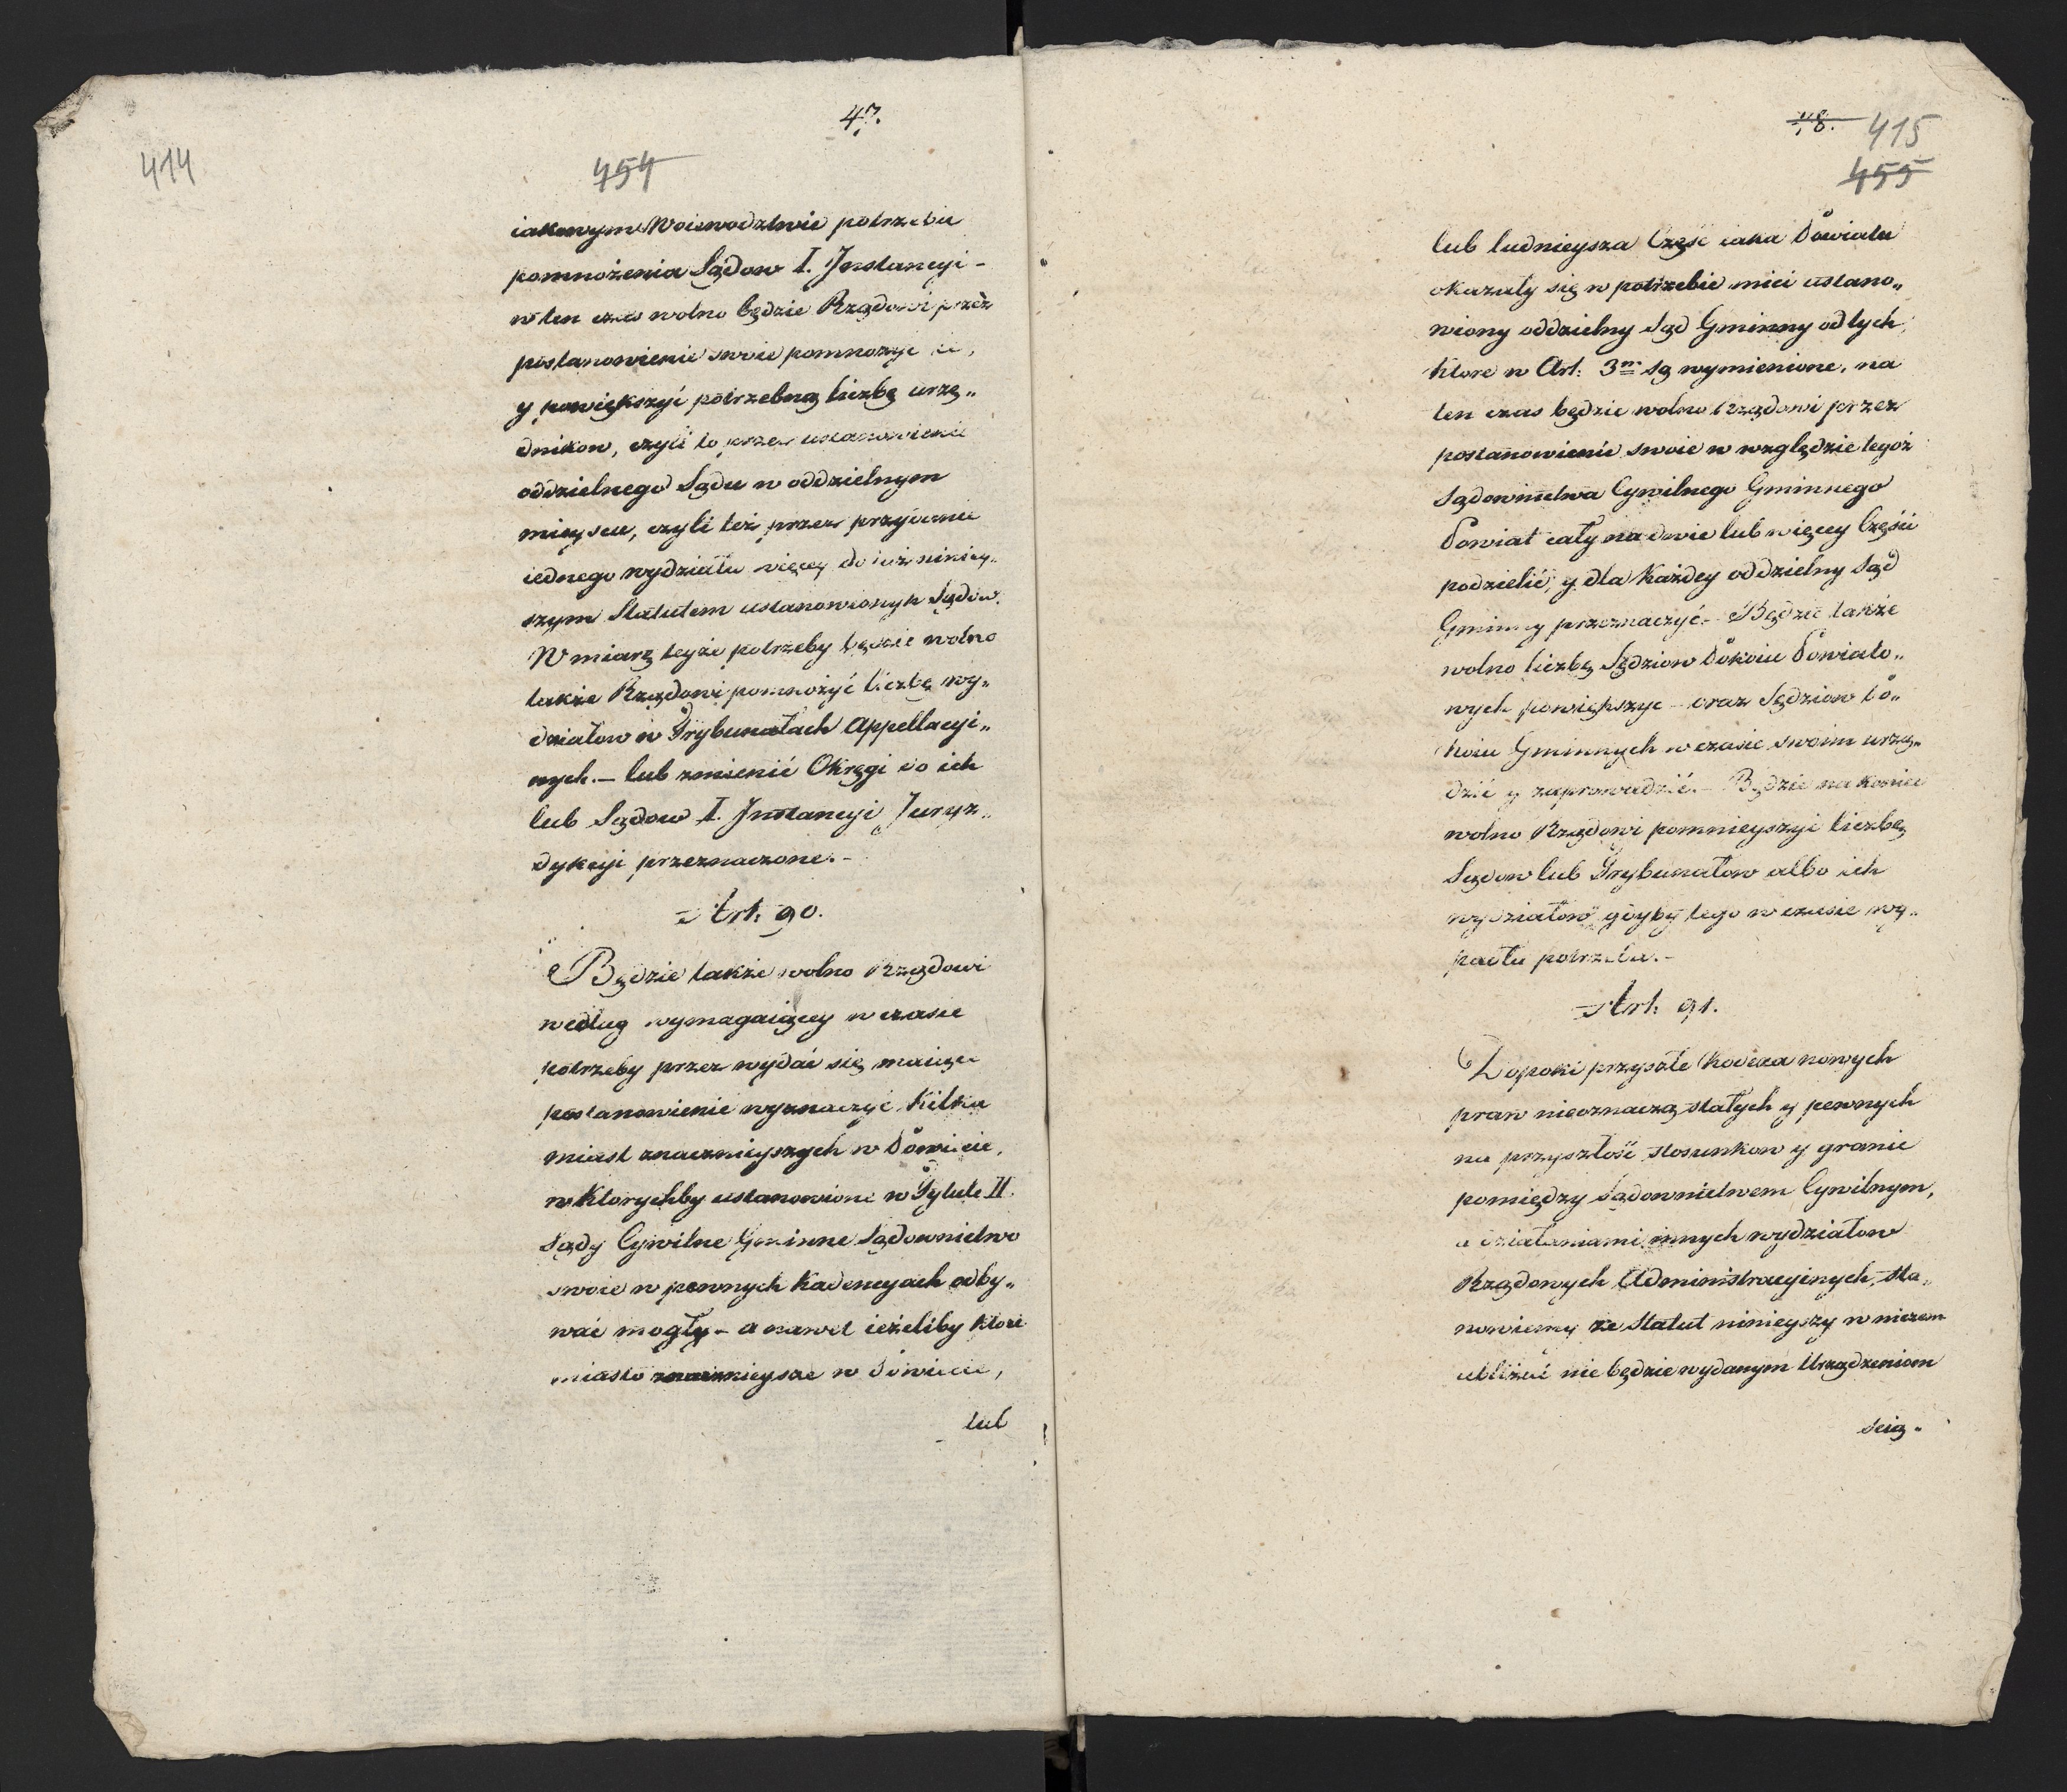 47.
414
454
iakowym Woiewodztwie potrzeba
pomnożenia Sądow I. Instancyi -
w ten czas wolno będzie Rządowi przez
postanowienie swoie pomnożyć ie,
y powiększyć potrzebną liczbę urzę„
dnikow, czyli to przez ustanowienie
oddzielnego Sądu w oddzielnym
mieyscu, czyli też przez przydanie
iednego wydziału więcey do iuż ninieysz„
szym Statutem ustanowionych Sądow.
W miarę teyże potrzeby będzie wolno
także Rządowi pomnożyć liczbę wy„
działow w Trybunałach Appellacyi„
nych. — lub zmienić Okręgi do ich
lub Sądow I. Instancyi Juryz„
dykcyi przeznaczone. -
Art. 90.
Będzie także wolno Rządowi
według wymagaiącey w czasie
potrzeby przez wydać się maiące
postanowienie wyznaczyć kilka
miast znacznieyszych w Powiecie,
w ktorychby ustanowione w Tytule II.
Sądy Cywilne Gminne Sądownictwo
swoie w pewnych Kadencyach odby„
wać mogły - a nawet ieżeliby ktore
miasto znacznieysze w Powiecie,
lub
48.
415
455
lub ludnieysza Część iaka Powiatu
okazały się w potrzebie mieć ustano„
wiony oddzielny Sąd Gminny od tych,
ktore w Art: 3m są wymienione, na
ten czas będzie wolno Rządowi przez
postanowienie swoie w względzie tegoż
Sądownictwa Cywilnego Gminnego
Powiat cały na dwie lub więcey Części
podzielić, y dla każdey oddzielny Sąd
Gminny przeznaczyć. - Będzie także
wolno liczbę Sędziow Pokoiu Powiato„
wych powiększyć - oraz Sędziow Po„
koiu Gminnych w czasie swoim urzą„
dzić y zaprowadzić. - Będzie na koniec
wolno Rządowi pomnieyszyć liczbę
Sądow lub Trybunałow albo ich
wydziałow gdyby tego w czasie wy„
padła potrzeba. -
Art. 91.
Dopoki przyszłe Kodexa nowych
praw nieoznaczą stałych y pewnych
na przyszłość stosunkow y granic
pomiędzy Sądownictwem Cywilnym,
a działaniami innych wydziałow
Rządowych Administracyinych, sta„
nowiemy że Statut ninieyszy w niczem
ubliżać nie będzie wydanym Urządzeniom
ścią„